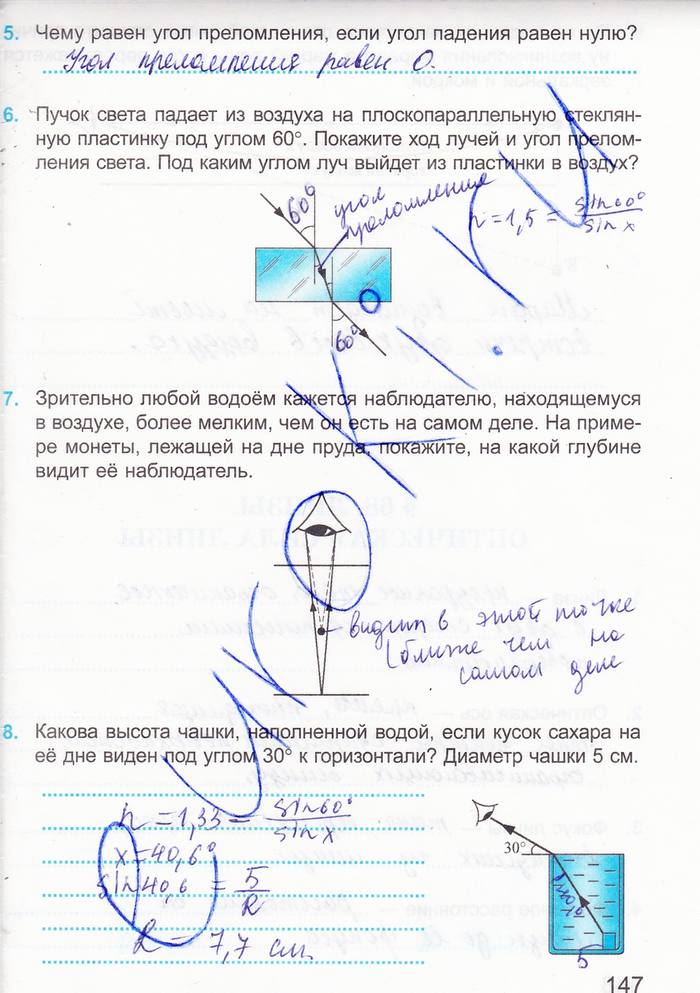 5. Чему равен угол преломления, если угол падения равен нулю?
Угол преломления равен 0.
6. Пучок света падает из воздуха на плоскопараллельную стеклян-
ную пластинку под углом 60°. Покажите ход лучей и угол прелом-
ления света. Под каким углом луч выйдет из пластинки в воздух?
60°
угол
преломления
n = 1,5 = sin60° / sin x
60°
7. Зрительно любой водоём кажется наблюдателю, находящемуся
в воздухе, более мелким, чем он есть на самом деле. На приме-
ре монеты, лежащей на дне пруда, покажите, на какой глубине
видит её наблюдатель.
видит в этой точке
(ближе чем на
самом деле
8. Какова высота чашки, наполненной водой, если кусок сахара на
её дне виден под углом 30° к горизонтали? Диаметр чашки 5 см.
n = 1,33 = sin60° / sin x
x = 40,6°
sin 40,6 = 5 / R
R = 7,7 см
30°
5
147